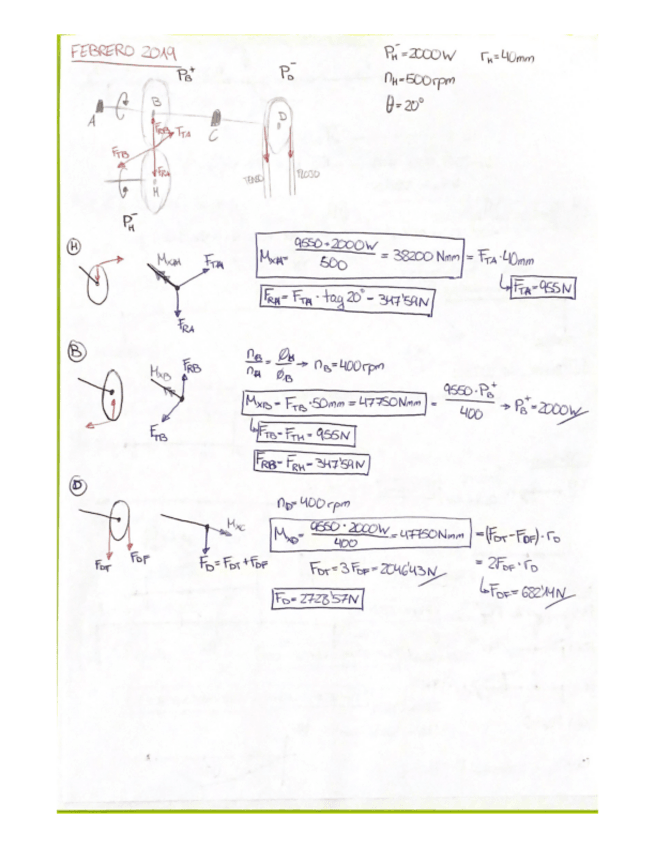 FEBRERO 2019
P_H^- = 2000W r_H = 40mm
n_H = 500rpm
θ = 20°
P_B^+ P_D^-
A B C D
F_RB T_TA
F_TB F_RA
H
TENSO FLOJO
P_H^-
H
M_XH F_TH
F_RA
M_XH = 9550·2000W / 500 = 38200 Nmm = F_TA·40mm
↳ F_TA = 955N
F_RH = F_TH · tag 20° = 347'59N
B
M_XB F_RB
F_TB
n_B/n_H = Ø_H/Ø_B → n_B = 400rpm
M_XB = F_TB·50mm = 47750Nmm = 9550·P_B^+ / 400 → P_B^+ = 2000W
↳ F_TB = F_TH = 955N
F_RB = F_RH = 347'59N
D
F_DT F_DF
M_XC
F_D = F_DT + F_DF
n_D = 400rpm
M_XD = 9550·2000W / 400 = 47750Nmm = (F_DT - F_DF)·r_D
F_DT = 3F_DF = 2046'43N = 2F_DF·r_D
↳ F_DF = 682'14N
F_D = 2728'57N